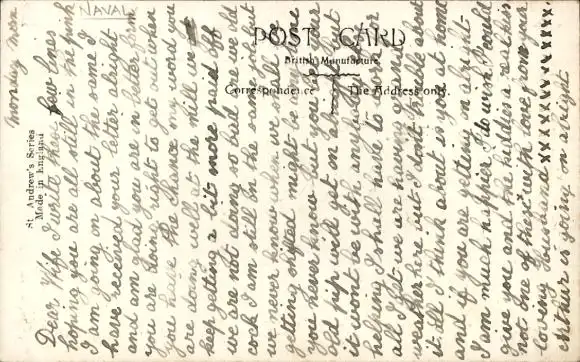 NAVAL
POST CARD
British Manufacture
Correspondence The Address only.
St. Andrew's Series
Made in England
Monday Morn
Dear Wife I send these few lines
hoping you are all still in the pink
I am going on about the same I
have received your letter alright
and am glad you are in better firm
you are doing right to get out when
you have the chance my word you
are doing well at the mill we
keep getting a bit more paid off
we are not doing so bad are we old
cock I am still on the same job but
we never know when we shall be
getting shifted might be any time
you never know but you bet your
old pip will get on alright but
it wont be with anybodys
helping I shall have to work for
all I get we are having grand
weather here but I don't trouble about
it all I think about is you at home
and if you are getting on alright
I am much happier I do wish I could
give you and the kiddies a
not one of this with love from your
loving Husband xxxxxxx
Arthur is going on alright
xxxxxxxxxxx